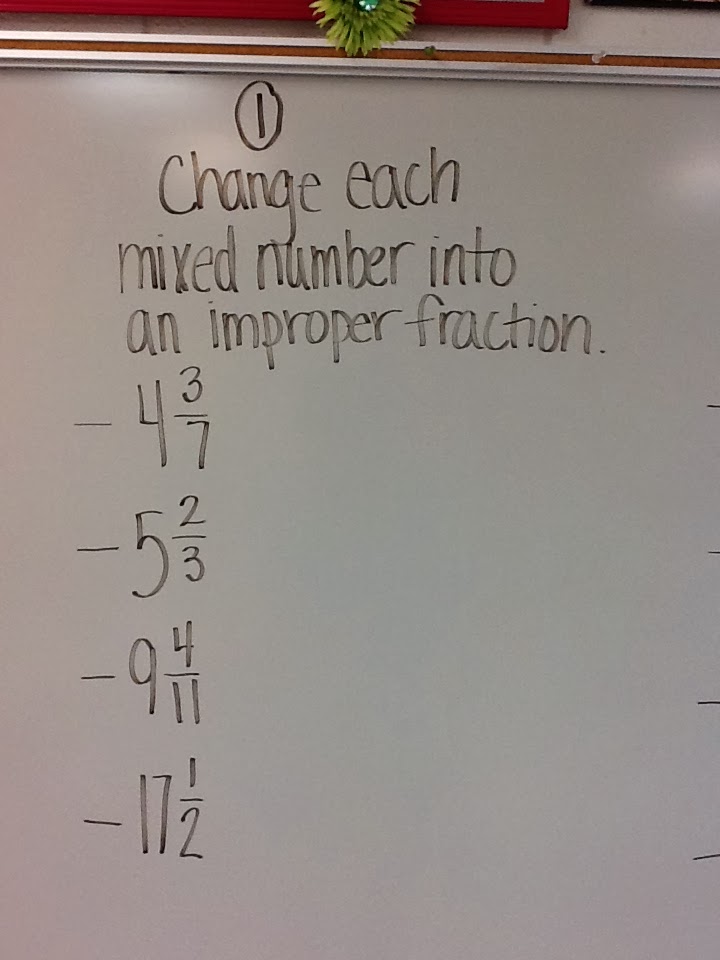 1
Change each
mixed number into
an improper fraction.
- 4 3/7
- 5 2/3
- 9 4/11
- 17 1/2